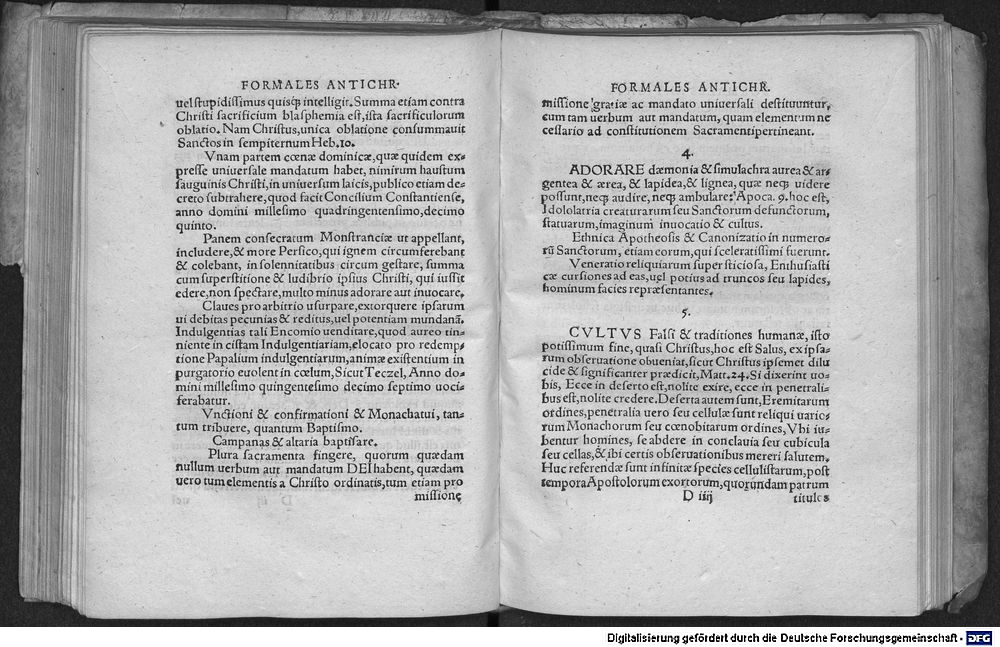 FORMALES ANTICHR.
uel stupidissimus quisq; intelligit. Summa etiam contra
Christi sacrificium blasphemia est, ista sacrificulorum
oblatio. Nam Christus, unica oblatione consummauit
Sanctos in sempiternum Heb. 10.
Vnam partem cœnæ dominicæ, quæ quidem ex-
presse uniuersale mandatum habet, nimirum haustum
sanguinis Christi, in uniuersum laicis, publico etiam de-
creto subtrahere, quod facit Concilium Constantiense,
anno domini millesimo quadringentesimo, decimo
quinto.
Panem consecratum Monstranciæ ut appellant,
includere, & more Persico, qui ignem circumferebant
& colebant, in solennitatibus circum gestare, summa
cum superstitione & ludibrio ipsius Christi, qui iussit
edere, non spectare, multo minus adorare aut inuocare.
Claues pro arbitrio usurpare, extorquere ipsarum
ui debitas pecunias & reditus, uel potentiam mundanã.
Indulgentias tali Encomio uenditare, quod aureo tin-
niente in cistam Indulgentiariam, elocato pro redemp-
tione Papalium indulgentiarum, animæ existentium in
purgatorio euolent in cœlum, Sicut Teczel, Anno do-
mini millesimo quingentesimo decimo septimo uoci-
ferabatur.
Vnctioni & confirmationi & Monachatui, tan-
tum tribuere, quantum Baptismo.
Campanas & altaria baptisare.
Plura sacramenta fingere, quorum quædam
nullum uerbum aut mandatum DEI habent, quædam
uero tum elementis a Christo ordinatis, tum etiam pro
missione
FORMALES ANTICHR.
missione gratiæ ac mandato uniuersali destituuntur,
cum tam uerbum aut mandatum, quam elementum ne
cessario ad constitutionem Sacramenti pertineant.
4.
ADORARE dæmonia & simulachra aurea & ar-
gentea & ærea, & lapidea, & lignea, quæ neq; uidere
possunt, neq; audire, neq; ambulare: Apoca. 9. hoc est,
Idololatria creaturarum seu Sanctorum defunctorum,
statuarum, imaginum inuocatio & cultus.
Ethnica Apotheosis & Canonizatio in numero-
rũ Sanctorum, etiam eorum, qui sceleratissimi fuerunt.
Veneratio reliquiarum superstitiosa, Enthusiasti
cæ cursiones ad eas, uel potius ad truncos seu lapides,
hominum facies repræsentantes.
5.
CVLTVS Falsi & traditiones humanæ, isto
potissimum fine, quasi Christus, hoc est Salus, ex ipsa-
rum obseruatione obueniat, sicut Christus ipsemet dilu
cide & significanter prædicit, Matt. 24. Si dixerint uo-
bis, Ecce in deserto est, nolite exire, ecce in penetrali-
bus est, nolite credere. Deserta autem sunt, Eremitarum
ordines, penetralia uero seu cellulæ sunt reliqui uario-
rum Monachorum seu cœnobitarum ordines, Vbi iu-
bentur homines, se abdere in conclauia seu cubicula
seu cellas, & ibi certis obseruationibus mereri salutem.
Huc referendæ sunt infinitæ species cellulistarum, post
tempora Apostolorum exortorum, quorundam patrum
D iiij titulos
Digitalisierung gefördert durch die Deutsche Forschungsgemeinschaft - DFG